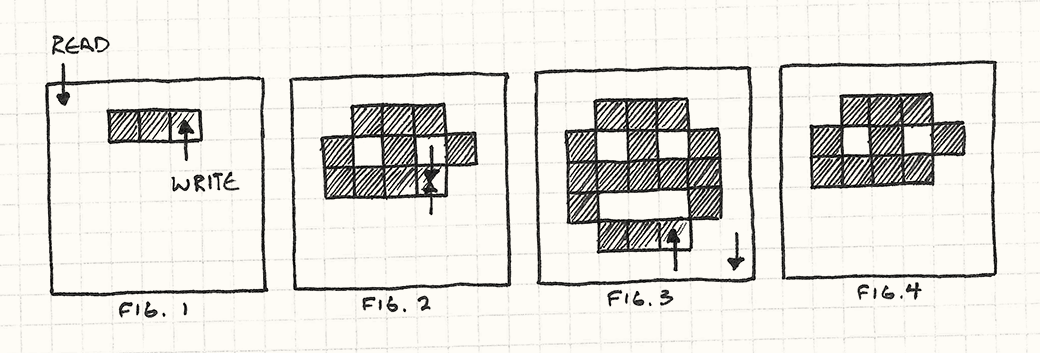 READ
WRITE
FIG. 1
FIG. 2
FIG. 3
FIG. 4